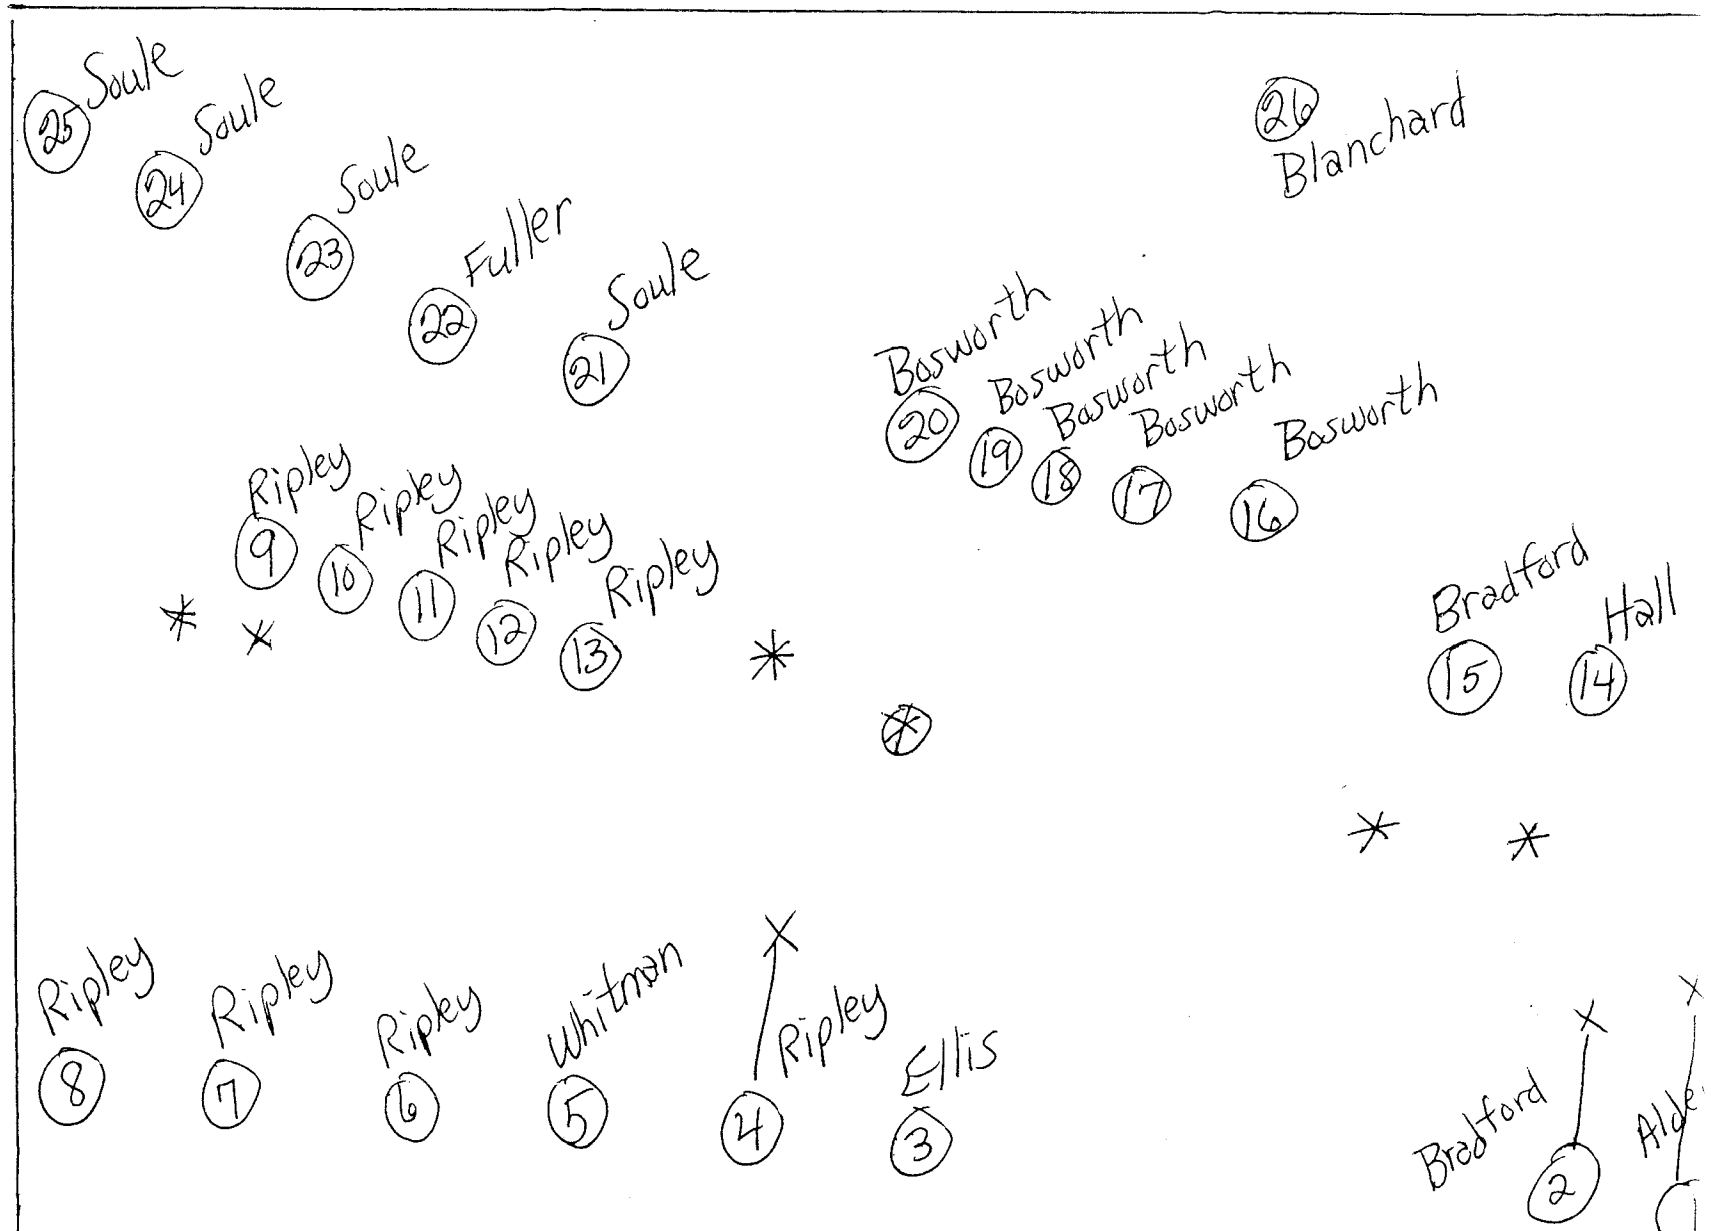 25 Soule
24 Soule
23 Soule
22 Fuller
21 Soule
26
Blanchard
Bosworth
20
Bosworth
19
Bosworth
18
Bosworth
17
Bosworth
16
Ripley
9
Ripley
10
Ripley
11
Ripley
12
Ripley
13
Bradford
15
Hall
14
Ripley
8
Ripley
7
Ripley
6
Whitman
5
Ripley
4
Ellis
3
Bradford
2
Alde